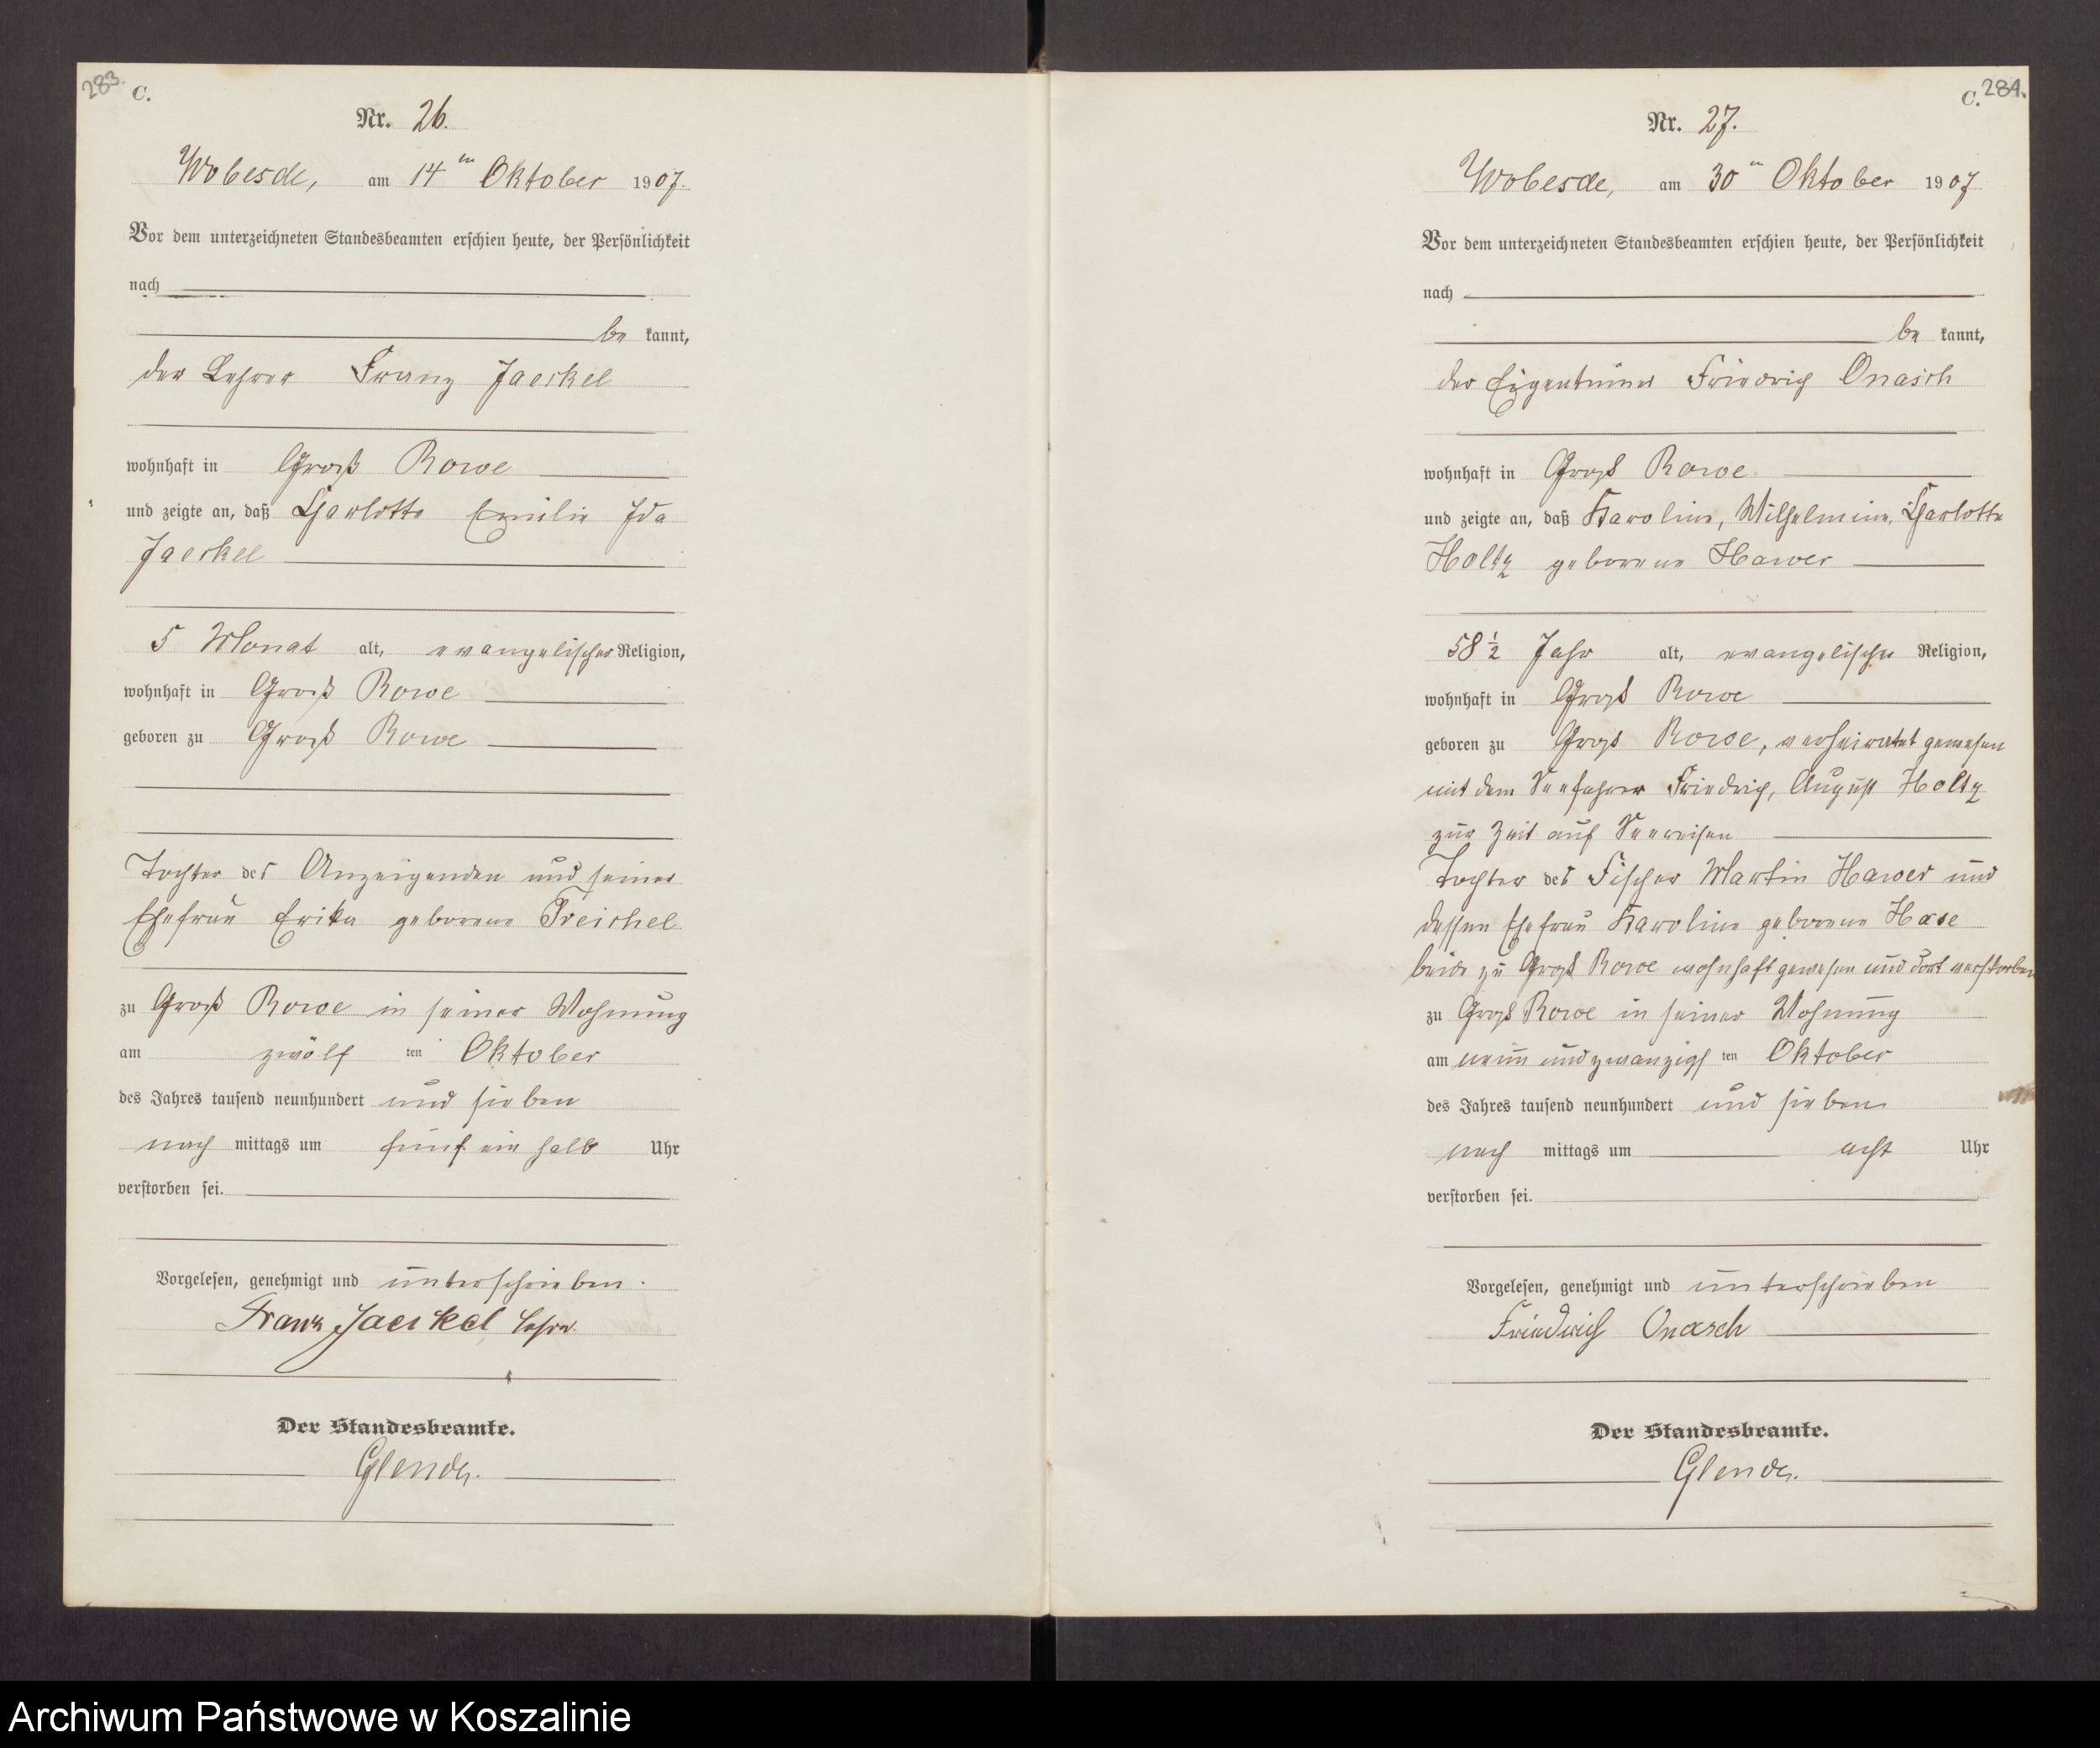 283.
C.
Nr. 26.
Wobesde, am 14ten Oktober 1907.
Vor dem unterzeichneten Standesbeamten erschien heute, der Persönlichkeit
nach
be kannt,
der Lehrer Franz Jaeckel
wohnhaft in Groß Rowe
und zeigte an, daß Charlotte Emilie Ida
Jaeckel
5 Monat alt, evangelischer Religion,
wohnhaft in Groß Rowe
geboren zu Groß Rowe
Tochter des Anzeigenden und seiner
Ehefrau Erika geborene Treichel
zu Groß Rowe in seiner Wohnung
am zwölf ten Oktober
des Jahres tausend neunhundert und sieben
nach mittags um fünf ein halb Uhr
verstorben sei.
Vorgelesen, genehmigt und unterschrieben.
Franz Jaeckel Lehrer.
Der Standesbeamte.
284.
C.
Nr. 27.
Wobesde, am 30ten Oktober 1907
Vor dem unterzeichneten Standesbeamten erschien heute, der Persönlichkeit
nach
be kannt,
der Eigentümer Friedrich Onasch
wohnhaft in Groß Rowe
und zeigte an, daß Karoline, Wilhelmine, Charlotte
Holtz geborene Hawer
58 1/2 Jahr alt, evangelischer Religion,
wohnhaft in Groß Rowe
geboren zu Groß Rowe, verheiratet gewesen
mit dem Seefahrer Friedrich, August Holtz
zur Zeit auf Seereisen
Tochter des Fischer Martin Hawer und
dessen Ehefrau Karoline geborene Hase
beide zu Groß Rowe wohnhaft gewesen und dort verstorben
zu Groß Rowe in seiner Wohnung
am neun und zwanzigs ten Oktober
des Jahres tausend neunhundert und sieben
nach mittags um acht Uhr
verstorben sei.
Vorgelesen, genehmigt und unterschrieben
Friedrich Onasch
Der Standesbeamte.
Archiwum Państwowe w Koszalinie